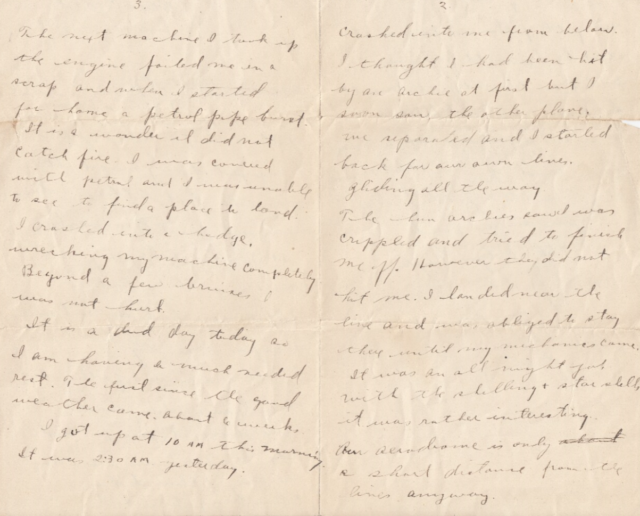 2.
crashed into me from below.
I thought I had been hit
by an archie at first but I
soon saw the other plane,
we separated and I started
back for our own lines.
gliding all the way
The Hun archies saw I was
crippled and tried to finish
me off. However they did not
hit me. I landed near the
line and was obliged to stay
there until my mechanics came.
It was an all night job
with the shelling & star shells
it was rather interesting.
Our aerodrome is only about
a short distance from the
lines anyway.
3.
The next machine I took up
the engine failed me in a
scrap and when I started
for home a petrol pipe burst.
It is a wonder it did not
catch fire. I was covered
with petrol and I was unable
to see to find a place to land.
I crashed into a hedge,
wrecking my machine completely
Beyond a few bruises I
was not hurt.
It is a dud day today so
I am having a much needed
rest. The first since the good
weather came. about 6 weeks.
I got up at 10 AM this morning.
It was 2:30 AM yesterday.